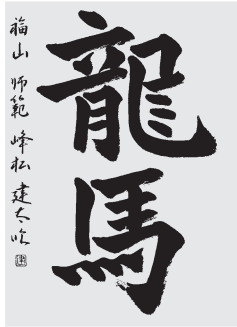 龍馬
福山 師範 峰松 建太吟